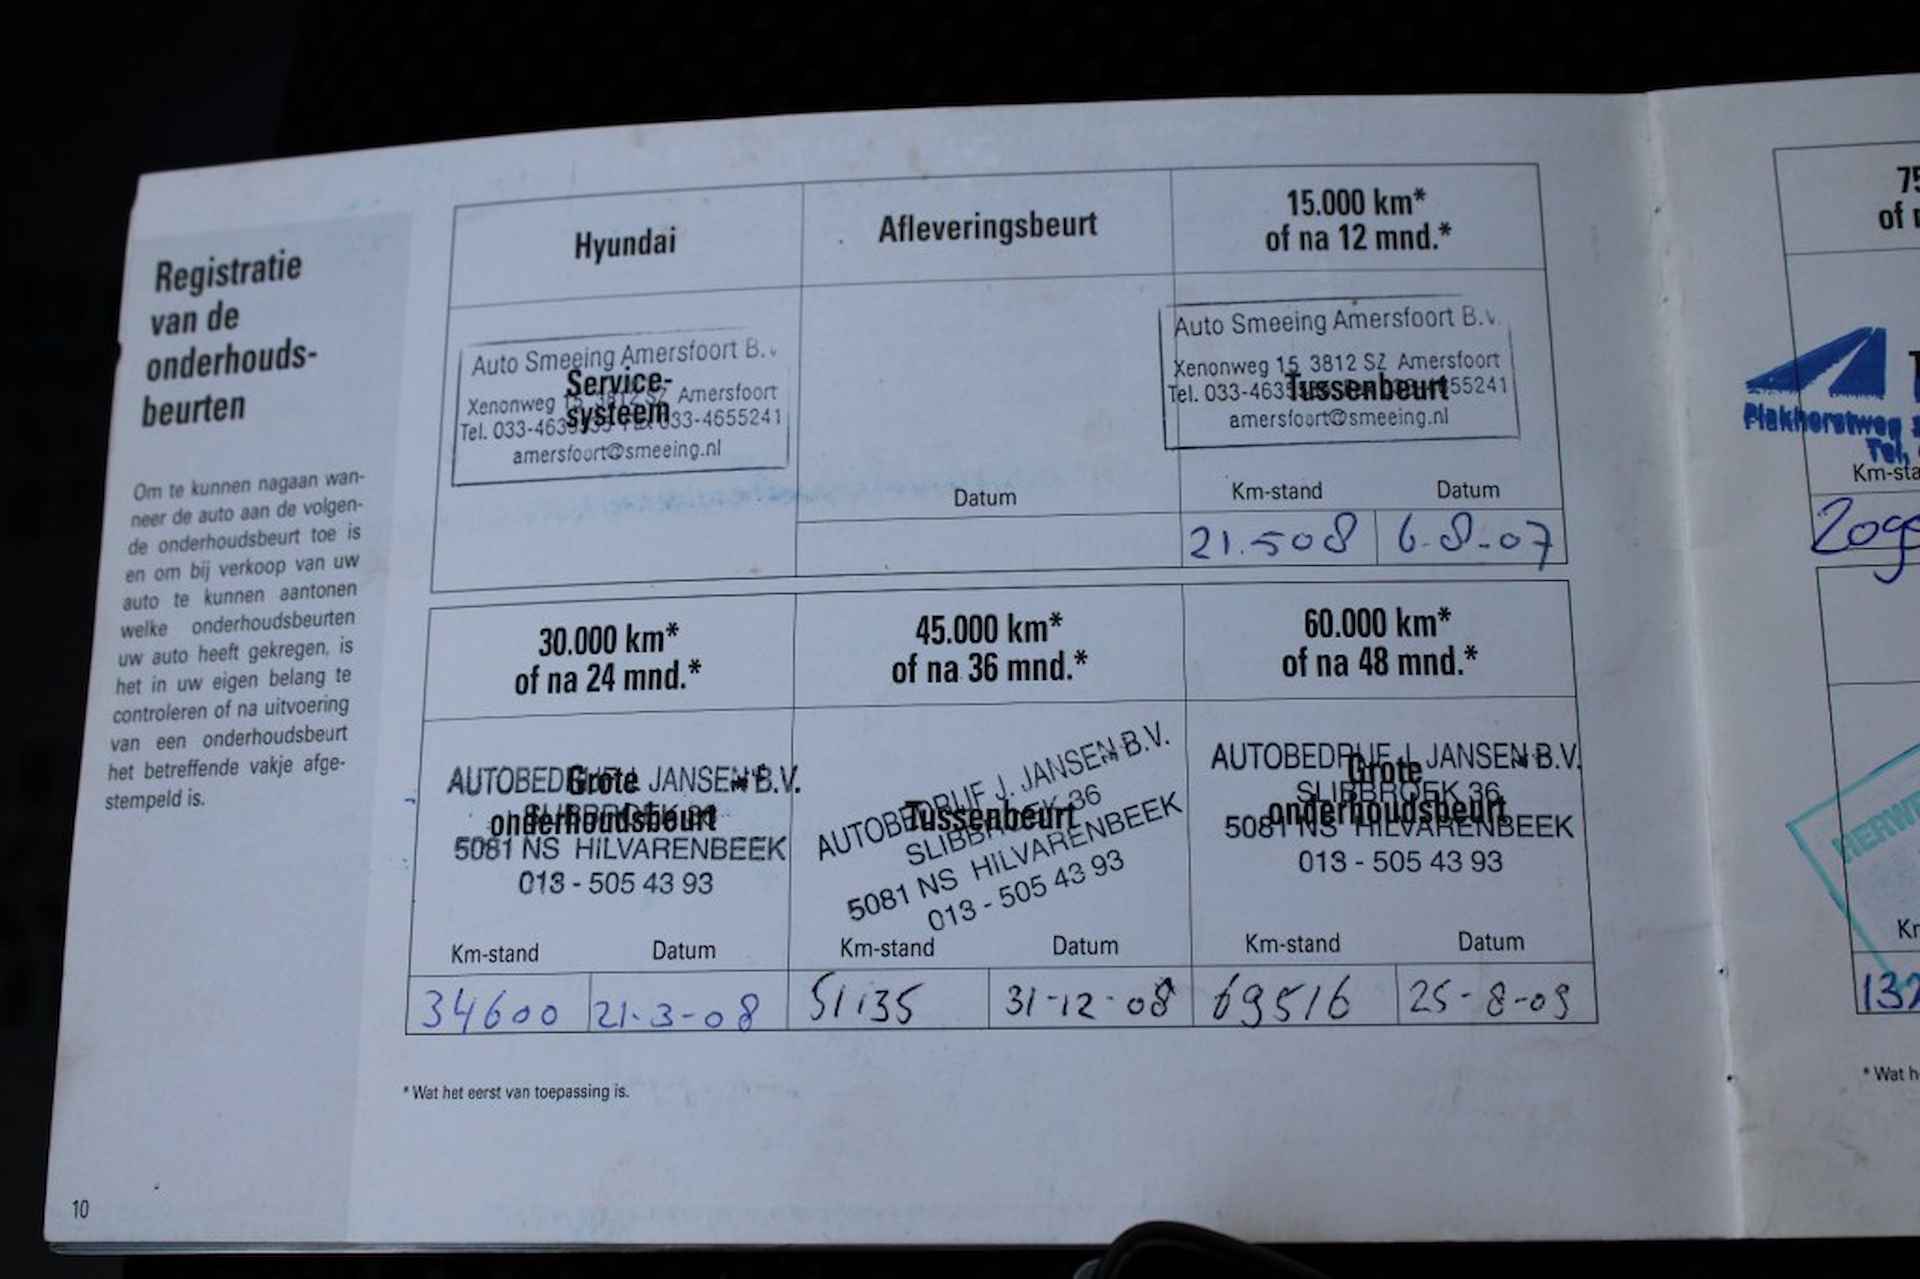 Registratie
van de
onderhouds-
beurten
Om te kunnen nagaan wan-
neer de auto aan de volgen-
de onderhoudsbeurt toe is
en om bij verkoop van uw
auto te kunnen aantonen
welke onderhoudsbeurten
uw auto heeft gekregen, is
het in uw eigen belang te
controleren of na uitvoering
van een onderhoudsbeurt
het betreffende vakje afge-
stempeld is.
10
Hyundai
Service-
systeem
Auto Smeeing Amersfoort B.V.
Xenonweg 15 3812 SZ Amersfoort
Tel. 033-4655241
amersfoort@smeeing.nl
Afleveringsbeurt
Datum
15.000 km*
of na 12 mnd.*
Auto Smeeing Amersfoort B.V.
Xenonweg 15 3812 SZ Amersfoort
Tussenbeurt
Tel. 033-4655241
amersfoort@smeeing.nl
Km-stand Datum
21.508 6-8-07
30.000 km*
of na 24 mnd.*
Grote
onderhoudsbeurt
AUTOBEDRIJF J. JANSEN B.V.
SLIBBROEK 36
5081 NS HILVARENBEEK
013 - 505 43 93
Km-stand Datum
34600 21-3-08
45.000 km*
of na 36 mnd.*
Tussenbeurt
AUTOBEDRIJF J. JANSEN B.V.
SLIBBROEK 36
5081 NS HILVARENBEEK
013 - 505 43 93
Km-stand Datum
51135 31-12-08
60.000 km*
of na 48 mnd.*
Grote
onderhoudsbeurt
AUTOBEDRIJF J. JANSEN B.V.
SLIBBROEK 36
5081 NS HILVARENBEEK
013 - 505 43 93
Km-stand Datum
69516 25-8-09
* Wat het eerst van toepassing is.
75
of
Plakhorstweg
Tel.
Km-sta
HERW
132
* Wat h